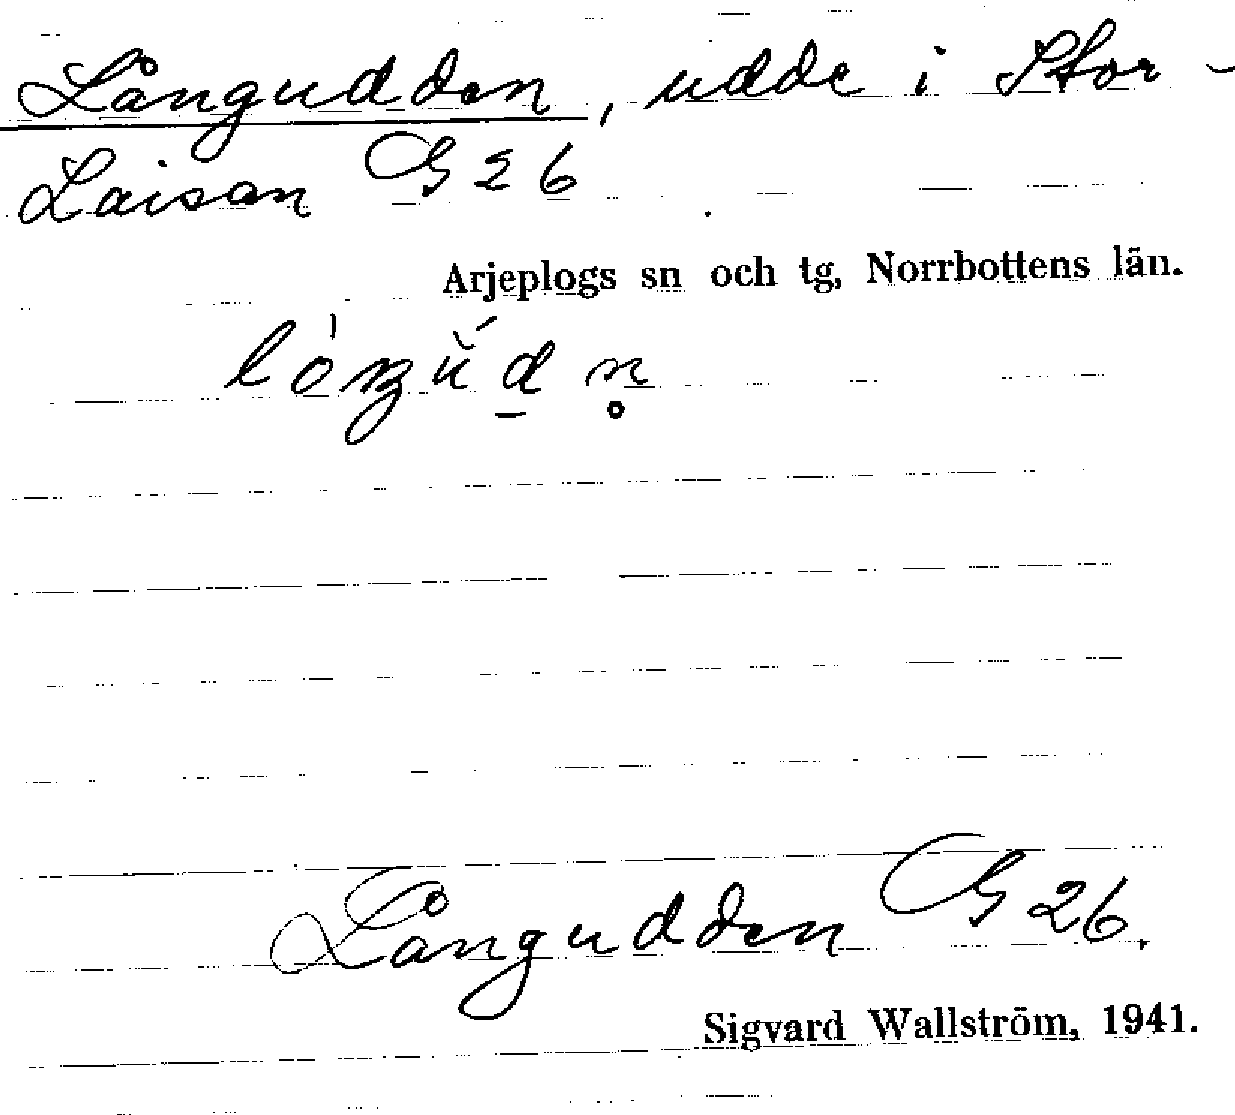 Långudden, udde i Stor-
Laisan G 26
Arjeplogs sn och tg, Norrbottens län.
Långudden G 26.
Sigvard Wallström, 1941.